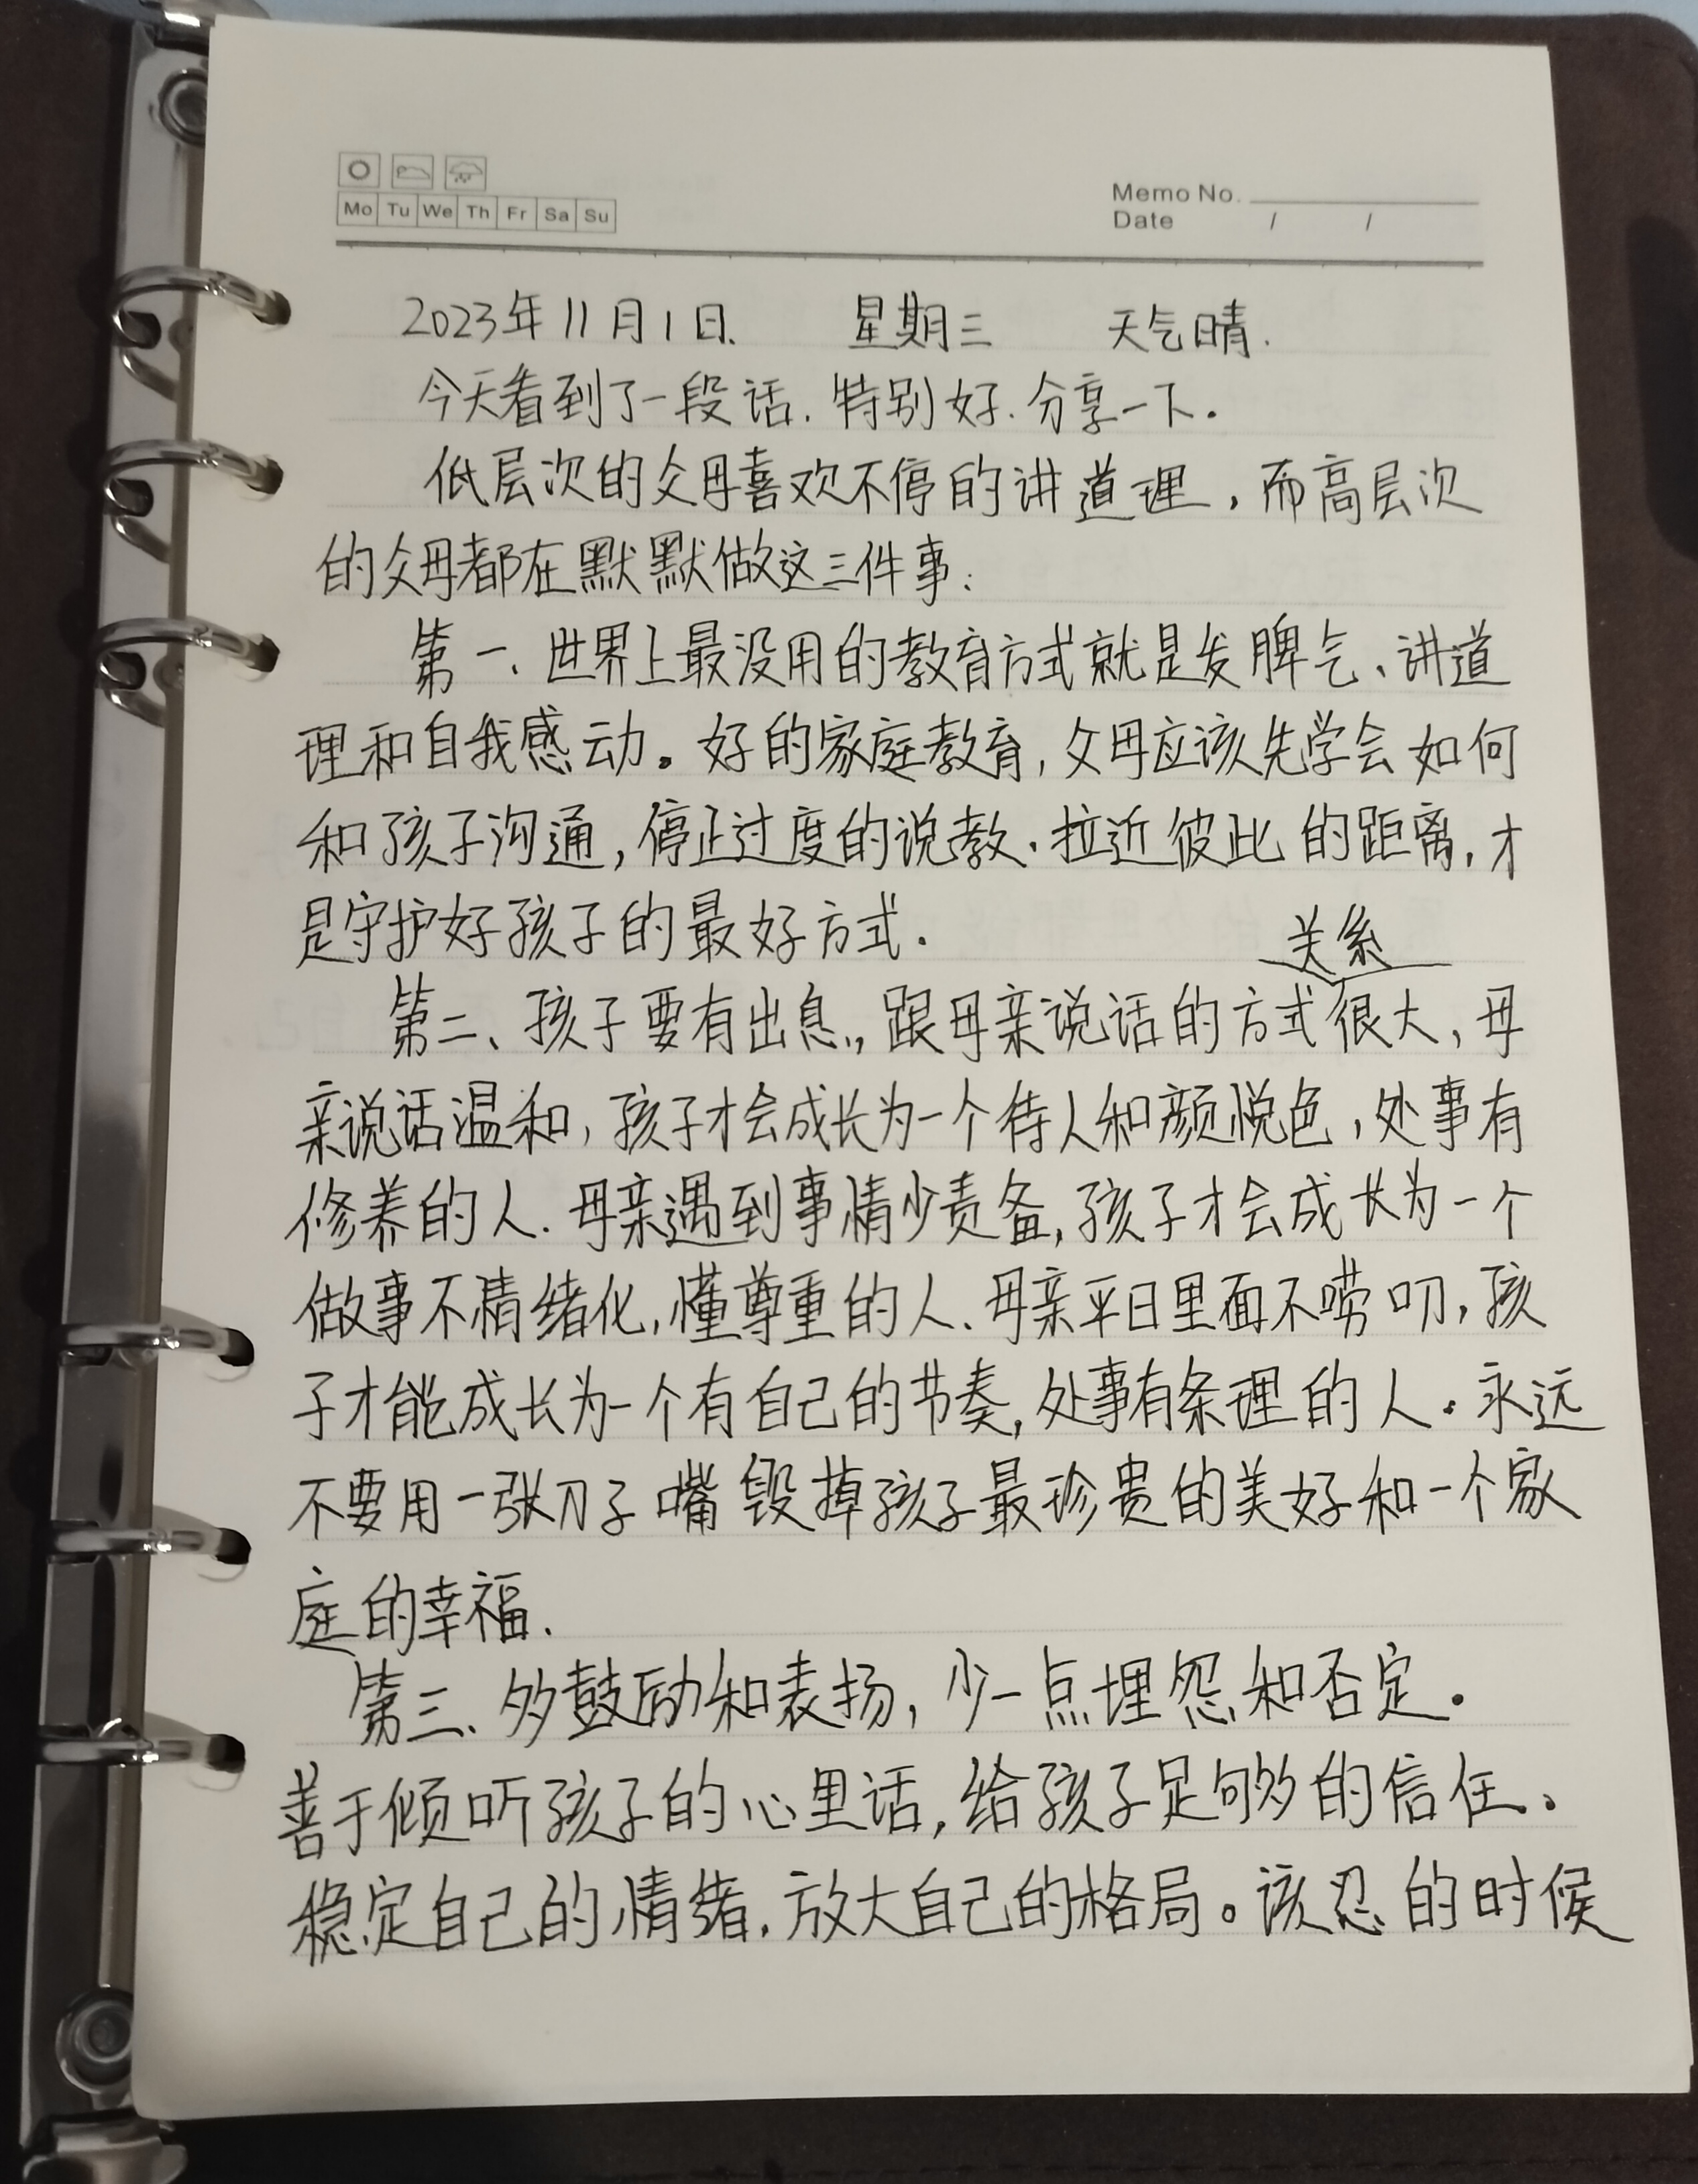 Mo Tu We Th Fr Sa Su
Memo No.
Date / /
2023年11月1日. 星期三 天气晴.
今天看到了一段话.特别好.分享一下.
低层次的父母喜欢不停的讲道理,而高层次
的父母都在默默做这三件事:
第一、世界上最没用的教育方式就是发脾气、讲道
理和自我感动。好的家庭教育,父母应该先学会如何
和孩子沟通,停止过度的说教.拉近彼此的距离,才
是守护好孩子的最好方式.
关系
第二、孩子要有出息.,跟母亲说话的方式很大,母
亲说话温和,孩子才会成长为一个待人和颜悦色,处事有
修养的人.母亲遇到事情少责备,孩子才会成长为一个
做事不情绪化,懂尊重的人.母亲平日里面不唠叨,孩
子才能成长为一个有自己的节奏,处事有条理的人.永远
不要用一张刀子嘴毁掉孩子最珍贵的美好和一个家
庭的幸福.
第三、多鼓励和表扬,少一点埋怨和否定.
善于倾听孩子的心里话,给孩子足够的信任、
稳定自己的情绪,放大自己的格局。该忍的时候